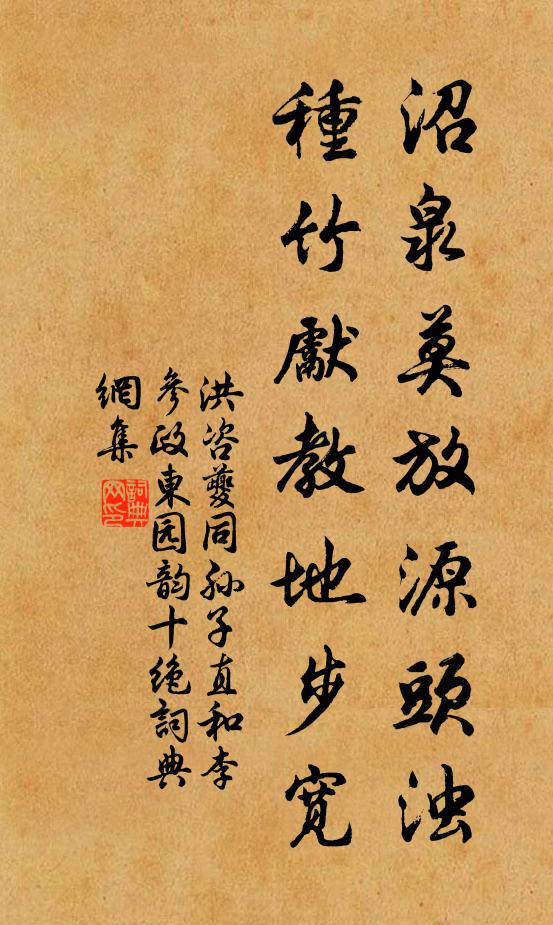 沼泉莫放源頭浊
種竹獻教地步寛
洪咨夔同孙子直和李
參政東园韵十绝詞典
網集
詞典
网印